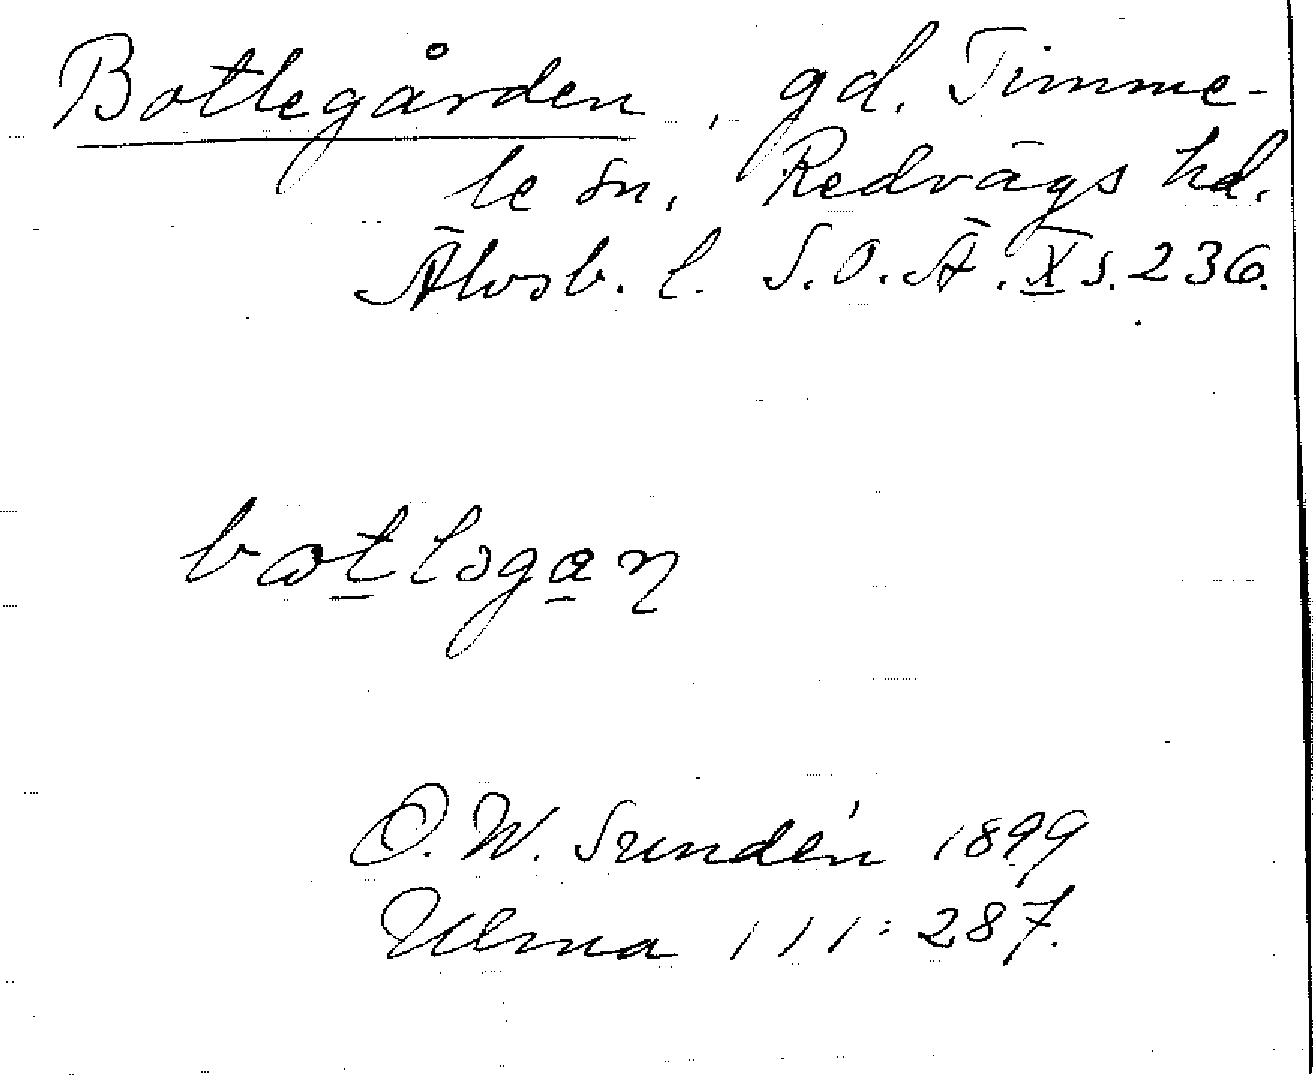 Botlegården, gd. Timme-
le sn. Redvägs hd.
Älvsb. l. S.O.Ä. X s. 236.
bωt̲ləga̲ŋ
O. W. Sundén 1899
Ulma 111:287.